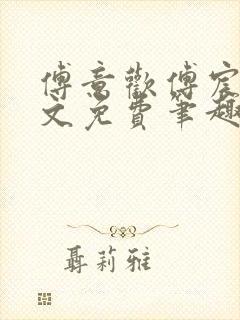 傅意歡傅宸
文免費筆趣
聶莉雅